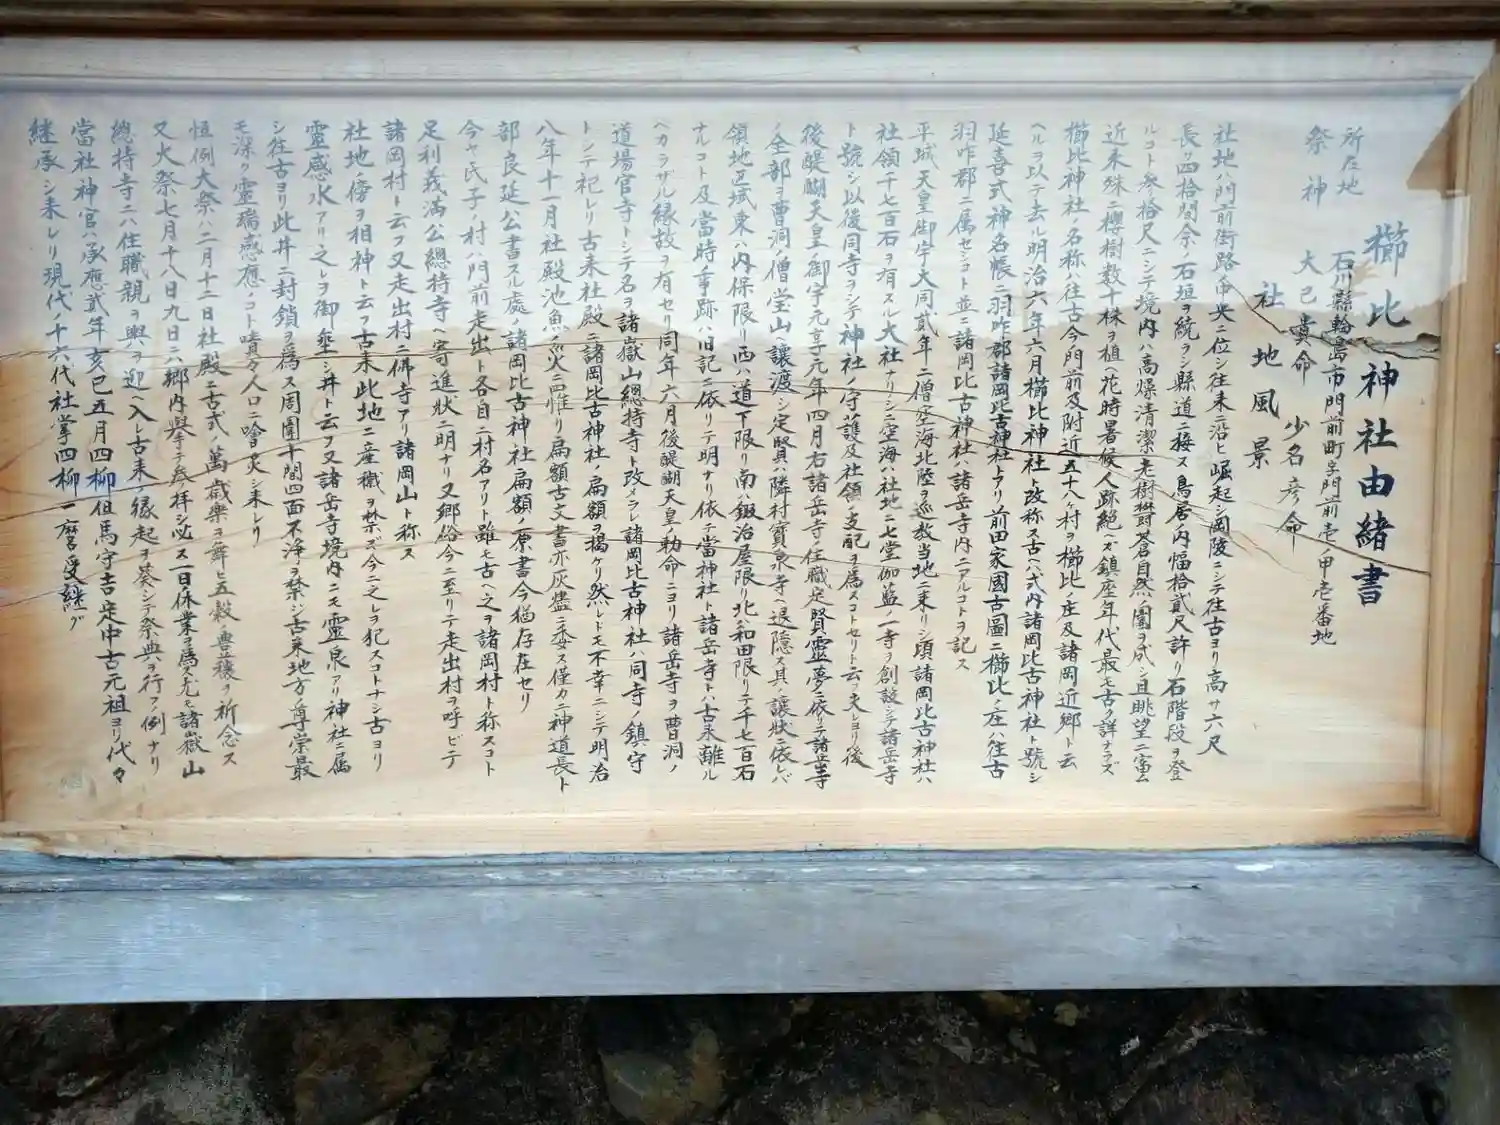 櫛比神社由緒書
所在地　石川縣輪島市門前町字門前壱ノ甲壱番地
祭神　大己貴命　少名彦命
社地風景
社地ハ門前街路ノ中央ニ位シ往来ニ沿ヒ崛起シ岡陵ニシテ往古ヨリ高サ六尺
長ク四拾間余ノ石垣ヲ繞ラシ縣道ニ接ス鳥居ノ内幅拾貳尺許リ石階段ヲ登
ルコト参拾尺ニシテ境内ハ高燥清潔老樹欝蒼自然ノ園ヲ成シ且眺望ニ富ム
近来殊ニ櫻樹数十株ヲ植ヘ花時暑候人跡絶ヘズ鎮座年代最モ古ク詳ナラズ
櫛比神社ノ名称ハ往古今門前及附近五十八ヶ村ヲ櫛比ノ庄及諸岡近郷ト云
ヘルヲ以テ去ル明治六年六月櫛比神社ト改称ス古ヘハ式内諸岡比古神社ト號シ
延喜式神名帳ニ羽咋郡諸岡比古神社トアリ前田家國古圖ニ櫛比ノ庄ハ往古
羽咋郡ニ属セシコト並ニ諸岡比古神社ハ諸岳寺内ニアルコトヲ記ス
平城天皇御宇大同貳年ニ僧空海北陸ヲ巡教当地ニ来リシ頃諸岡比古神社ハ
社領千七百石ヲ有スル大社ナリシニ空海ハ社地ニ七堂伽藍一寺ヲ創設シテ諸岳寺
ト號シ以後同寺ヲシテ神社ノ守護及社領ノ支配ヲ為スコトセリト云ヲ夫レヨリ後
後醍醐天皇ノ御宇元亨元年四月右諸岳寺ノ住職定賢靈夢ニ依リテ諸岳寺
ノ全部ヲ曹洞ノ僧堂山ヘ讓渡シ定賢ハ隣村寳泉寺ヘ退隠ス其ノ讓状ニ依レバ
領地区域東ハ内保限リ西ハ道下限リ南ハ鍛冶屋限リ北ハ和田限リニテ千七百石
ナルコト及當時垂跡ハ旧記ニ依リテ明ナリ依テ當神社ト諸岳寺トハ古来離ル
ヘカラザル縁故ヲ有セリ同年六月後醍醐天皇勅命ニヨリ諸岳寺ヲ曹洞ノ
道場官寺トシテ名ヲ諸嶽山總持寺ト改メラレ諸岡比古神社ハ同寺ノ鎮守
トシテ祀レリ古来社殿ニ諸岡比古神社ノ扁額ヲ掲ケリ然レドモ不幸ニシテ明治
八年十一月社殿池魚ノ火ニ罹リ扁額古文書亦灰燼ニ委ス僅カニ神道長ト
部良延公書スル處ノ諸岡比古神社扁額ノ原書今猶存在セリ
今ヤ氏子ノ村ハ門前走出ト各自ニ村名アリト雖モ古ハ之ヲ諸岡村ト称スコト
足利義満公總持寺ヘ寄進状ニ明ナリ又郷俗今ニ至リテ走出村ヲ呼ビテ
諸岡村ト云フ又走出村ニ佛寺アリ諸岡山ト称ス
社地ノ傍ヲ相神ト云フ古来此地ニ産穢ヲ禁ズ今ニ之レヲ犯スコトナシ古ヨリ
靈感水アリ之レヲ御垂シ井ト云ヲ又諸岳寺境内ニモ靈泉アリ神社ニ属
シ往古ヨリ此井ニ封鎖ヲ為ス周圍十間四面不浄ヲ禁ジ古来地方ノ尊崇最
モ深ク靈瑞感應ノコト嘖々人口ニ噲炙シ来レリ
恒例大祭ハ二月十二日社殿ニ古式ノ萬歳楽ヲ舞ヒ五穀ノ豊穣ヲ祈念ス
又火祭七月十八日九日ハ郷内挙テ参拝シ必ス一日休業ヲ為ス尤モ諸嶽山
總持寺ニハ住職親ヲ輿ヲ迎ヘ入レ古来ノ縁起ヲ葵シテ祭典ヲ行フノ例ナリ
當社神官ハ承應貳年亥巳五月四柳但馬守吉定中古元祖ヨリ代々
継承シ来レリ現代ノ十六代社掌四柳一麿受継グ